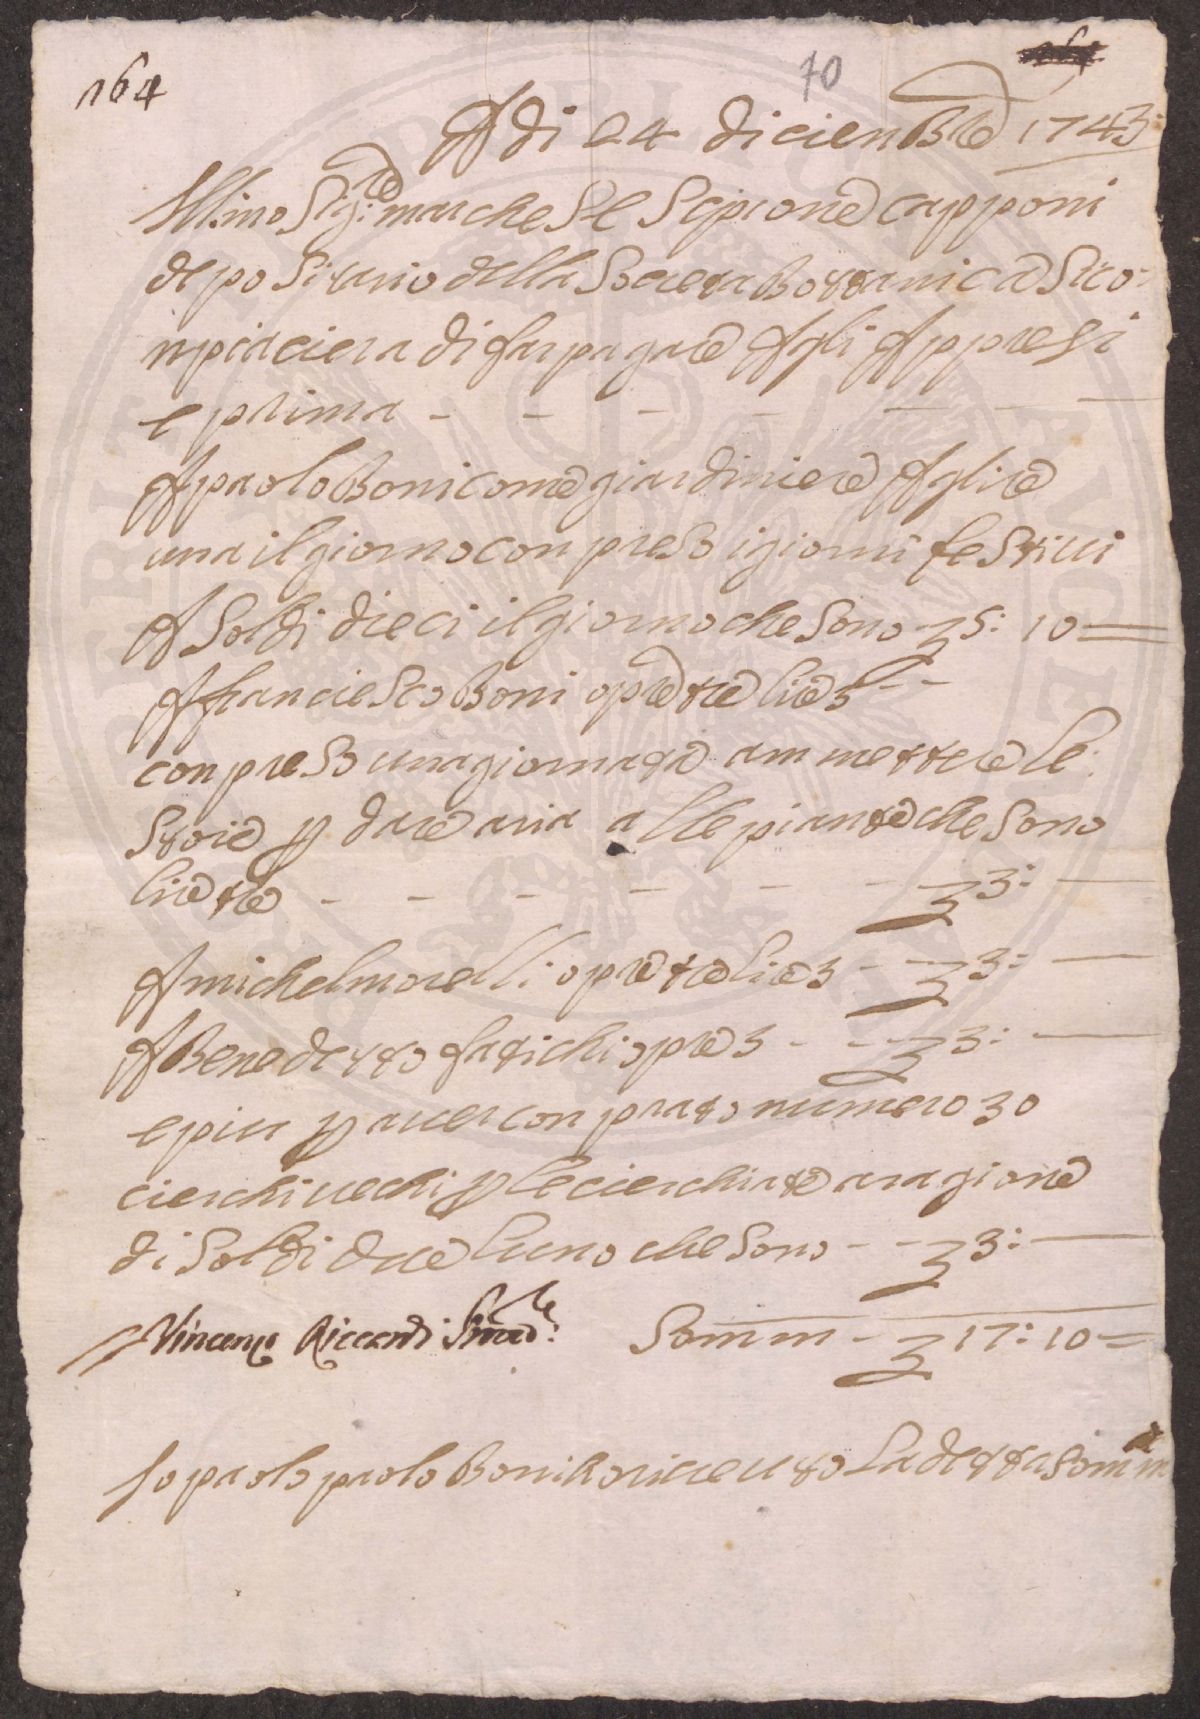 164
70
164
A di 24 diciembre 1743:
Ill:mo Sig:re marchese Scipione Capponi
depositario della Società Bottanica Si co-
mpiaciera di far pagare Agli Appresi
e prima - - - - - - -
A paolo Boni come giardiniere A lire
una il giorno conpreso i giorni festiui
A Soldi dieci il giorno che sono £ 5: 10
A franciesco Boni opre tre lire 3 - -
conpreso una giornata a mettere le
Stoie p dare aria alle piante che sono
lire tre - - - - - - £ 3: —
A michel morelli opre tre lire 3 - - £ 3: —
A Benedetto fatichi opre 3 - - - £ 3: —
e piu p auer conprato numero 30
cierchi uechi p le cierchiate a ragione
di Soldi due luno che sono - - £ 3: —
Vincenzo Riccardi
Somm - £ 17: 10
Io paolo paolo Boni o riceuuto La detta somma